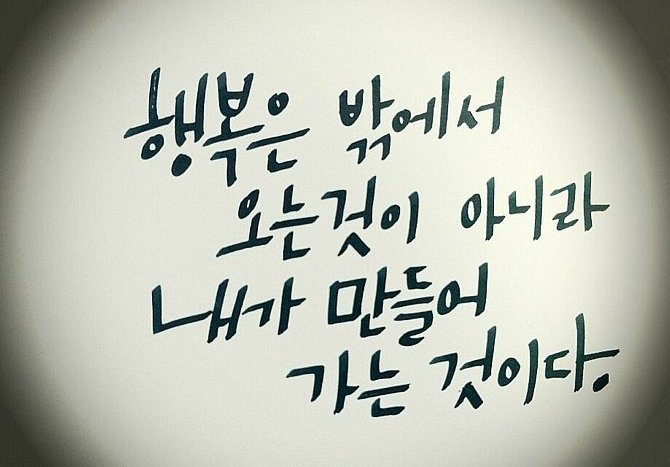 행복은 밖에서
오는것이 아니라
내가 만들어
가는 것이다.